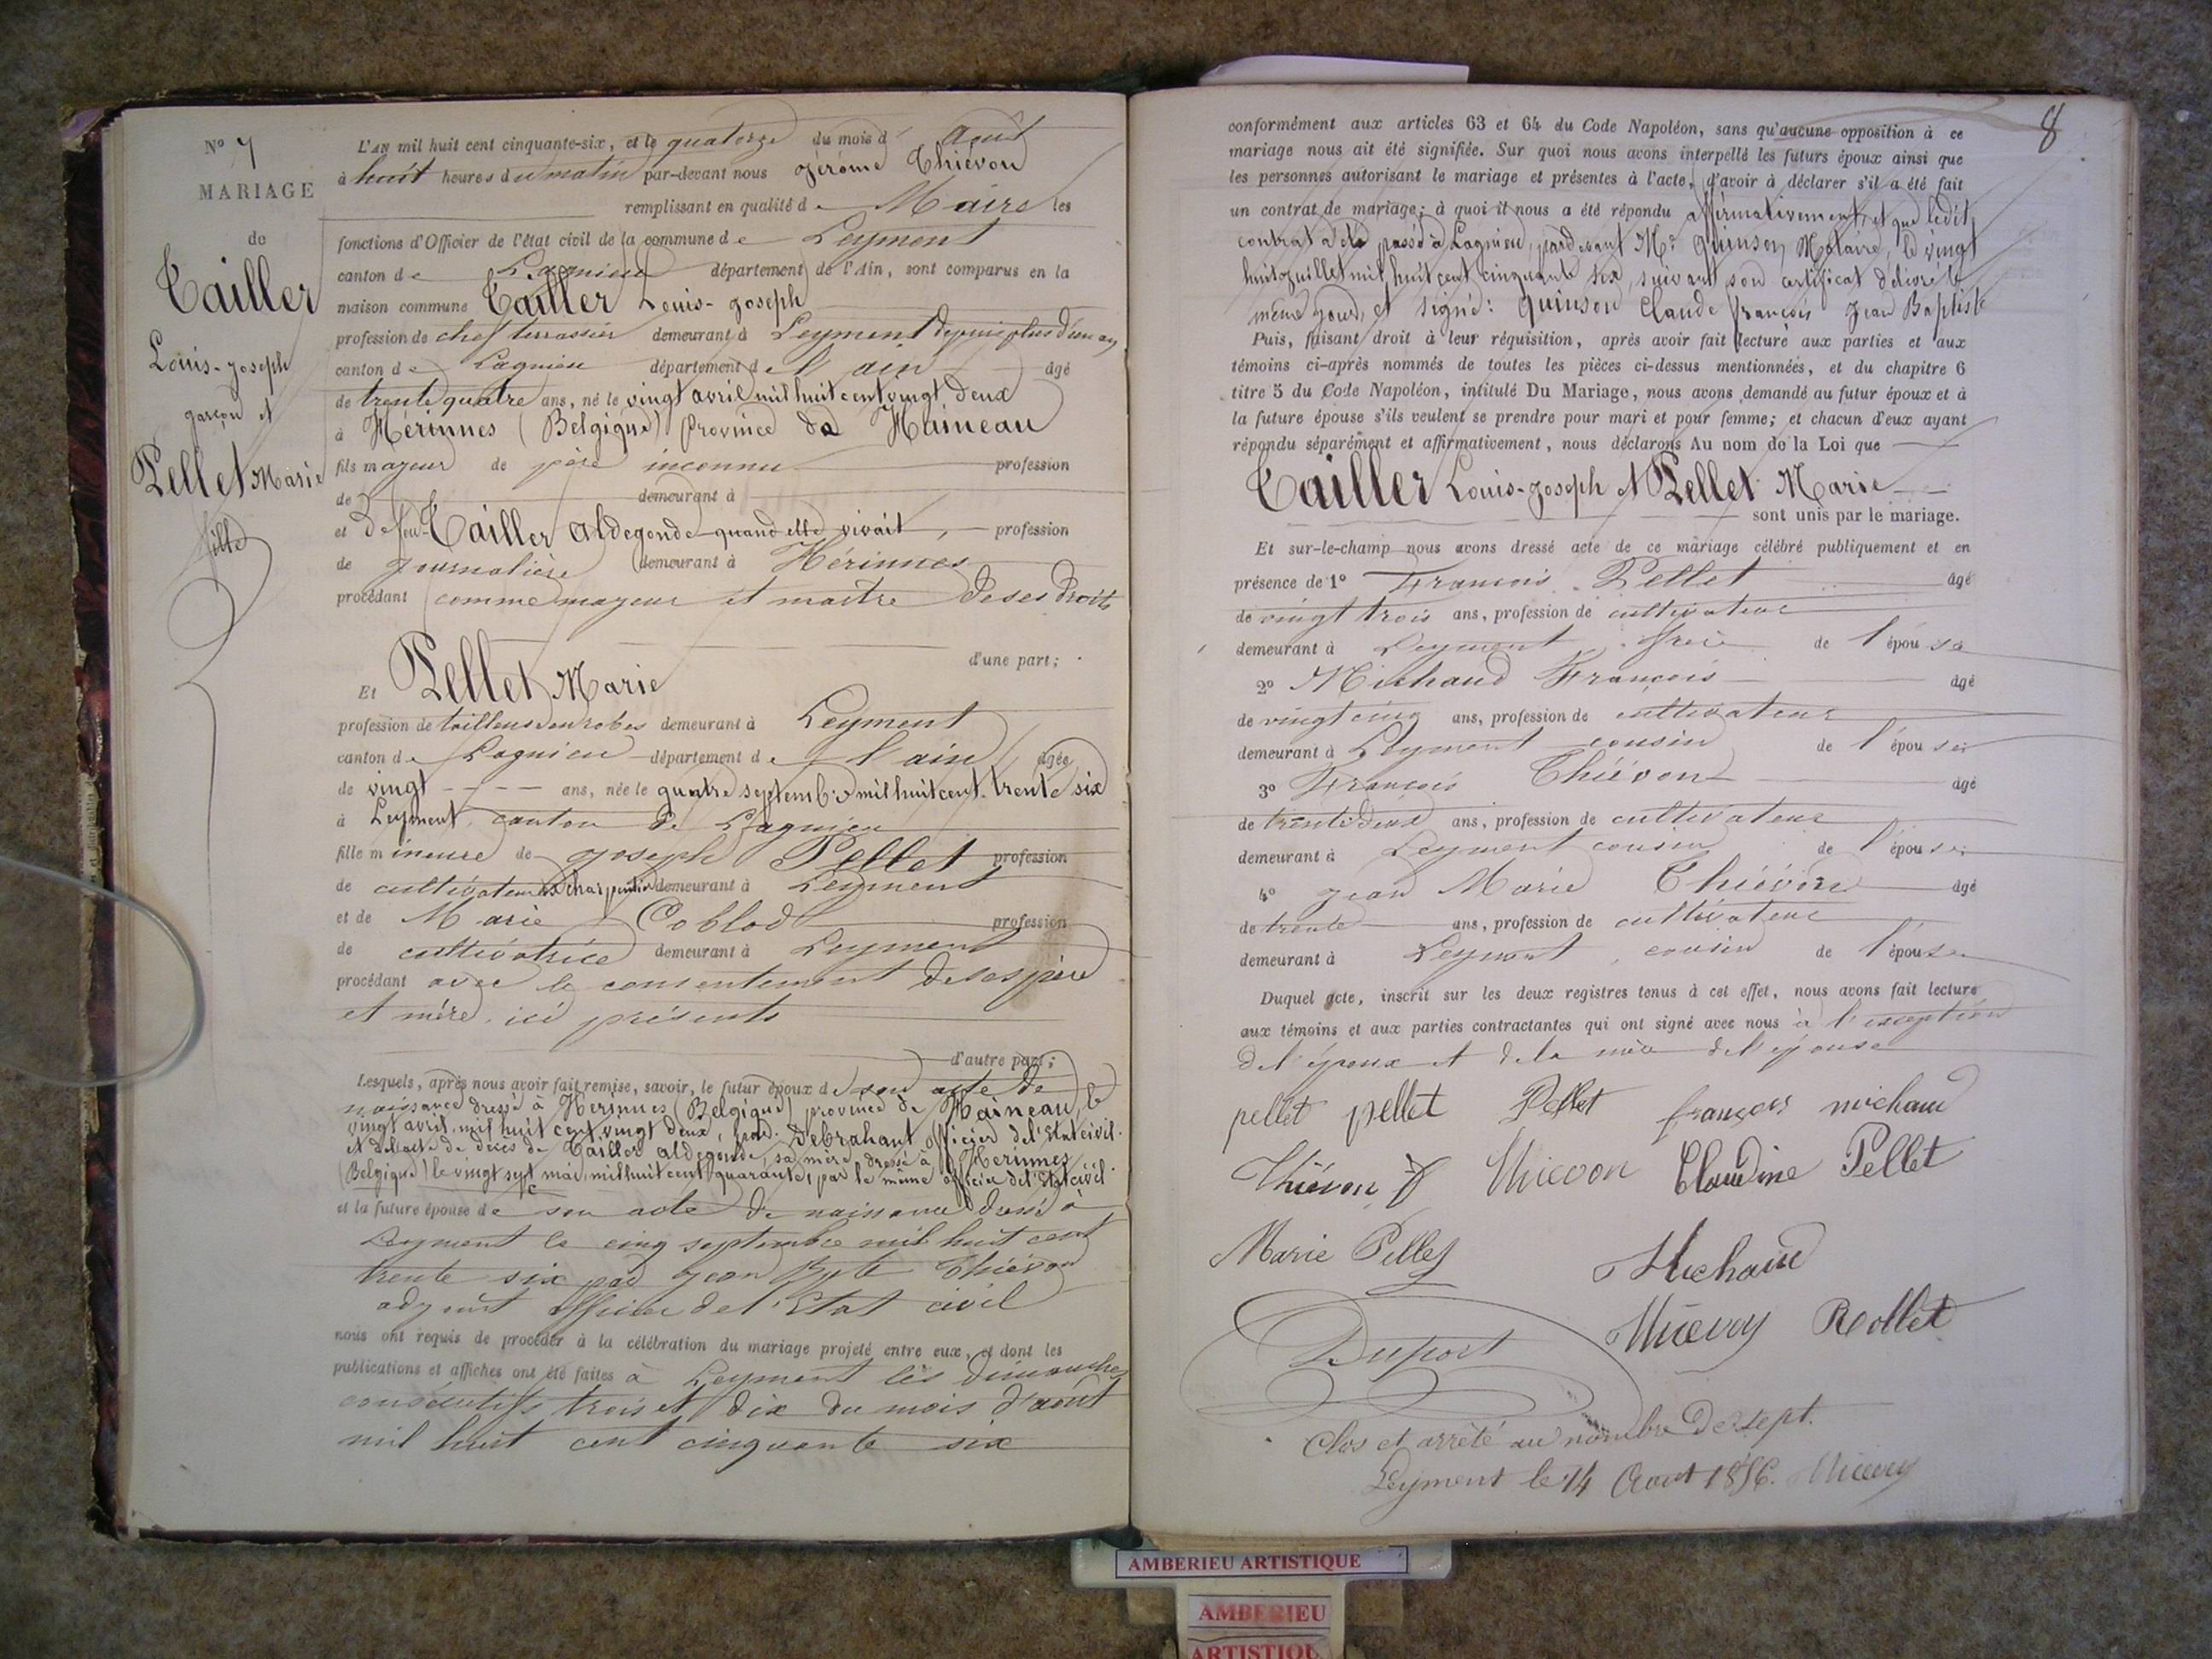 N° 7
MARIAGE
de
Tailler
Louis-Joseph
garçon et
Pellet Marie
fille
L'AN mil huit cent cinquante-six, et le quatorze du mois d' Août
à huit heures du matin par-devant nous Jérôme Thiévon
remplissant en qualité de Maire les
fonctions d'Officier de l'état civil de la commune de Leyment
canton de Lagnieu département de l'Ain, sont comparus en la
maison commune Tailler Louis-Joseph
profession de chef terrassier demeurant à Leyment depuis plus d'un an
canton de Lagnieu département de l'ain âgé
de trente quatre ans, né le vingt avril mil huit cent vingt deux
à Hérinnes (Belgique) province de Haineau
fils majeur de père inconnu profession
de demeurant à
et de feu Tailler Aldegonde quand elle vivait, profession
de journalière demeurant à Hérinnes
procédant comme majeur et maitre de ses droits
d'une part;
Et Pellet Marie
profession de tailleuse en robes demeurant à Leyment
canton de Lagnieu département de l'ain âgée
de vingt ans, née le quatre septembre mil huit cent trente six
à Leyment canton de Lagnieu
fille mineure de Joseph Pellet profession
de cultivateur et charpentier demeurant à Leyment
et de Marie Coblod profession
de cultivatrice demeurant à Leyment
procédant avec le consentement de ses père
et mère ici présents
d'autre part;
Lesquels, après nous avoir fait remise, savoir, le futur époux de son acte de
naissance dressé à Herinnes (Belgique) province de Haineau, le
vingt avril mil huit cent vingt deux, par Debrahant officier de l'Etat civil.
et de l'acte de décès de Tailler aldegonde, sa mère dressé à Herinnes
(Belgique) le vingt sept mai mil huit cent quarante, par le même officier de l'Etat civil.
et la future épouse de son acte de naissance dressé à
Leyment le cinq septembre mil huit cent
trente six par Jean Bpte Thiévon
adjoint officier de l'Etat civil
nous ont requis de procéder à la célébration du mariage projeté entre eux, et dont les
publications et affiches ont été faites à Leyment les dimanches
consécutifs trois et dix du mois d'août
mil huit cent cinquante six
8
conformément aux articles 63 et 64 du Code Napoléon, sans qu'aucune opposition à ce
mariage nous ait été signifiée. Sur quoi nous avons interpellé les futurs époux ainsi que
les personnes autorisant le mariage et présentes à l'acte, d'avoir à déclarer s'il a été fait
un contrat de mariage; à quoi il nous a été répondu affirmativement, et que ledit
contrat a été passé à Lagnieu, pardevant Me Quinson, Notaire, le vingt
huit juillet mil huit cent cinquante six, suivant son certificat délivré le
même jour, et signé: Quinson Claude françois Jean Baptiste
Puis, faisant droit à leur réquisition, après avoir fait lecture aux parties et aux
témoins ci-après nommés de toutes les pièces ci-dessus mentionnées, et du chapitre 6
titre 5 du Code Napoléon, intitulé Du Mariage, nous avons demandé au futur époux et à
la future épouse s'ils veulent se prendre pour mari et pour femme; et chacun d'eux ayant
répondu séparément et affirmativement, nous déclarons Au nom de la Loi que
Tailler Louis-Joseph et Pellet Marie
sont unis par le mariage.
Et sur-le-champ nous avons dressé acte de ce mariage célébré publiquement et en
présence de 1° François Pellet âgé
de vingt trois ans, profession de cultivateur
demeurant à Leyment frère de l'épouse
2° Michaud François âgé
de vingt cinq ans, profession de cultivateur
demeurant à Leyment cousin de l'épouse
3° François Thiévon âgé
de trente deux ans, profession de cultivateur
demeurant à Leyment cousin de l'épouse
4° Jean Marie Thiévon âgé
de trente ans, profession de cultivateur
demeurant à Leyment, cousin de l'épouse
Duquel acte, inscrit sur les deux registres tenus à cet effet, nous avons fait lecture
aux témoins et aux parties contractantes qui ont signé avec nous à l'exception
de l'époux et de la mère de l'épouse
pellet pellet Pellet françois michaud
Thiévon Thievon Claudine Pellet
Marie Pellet Michaud
Duport Thievon Rollet
Clos et arrêté au nombre de sept.
Leyment le 14 Aout 1856. Thievon
AMBERIEU ARTISTIQUE
AMBERIEU
ARTISTIQU